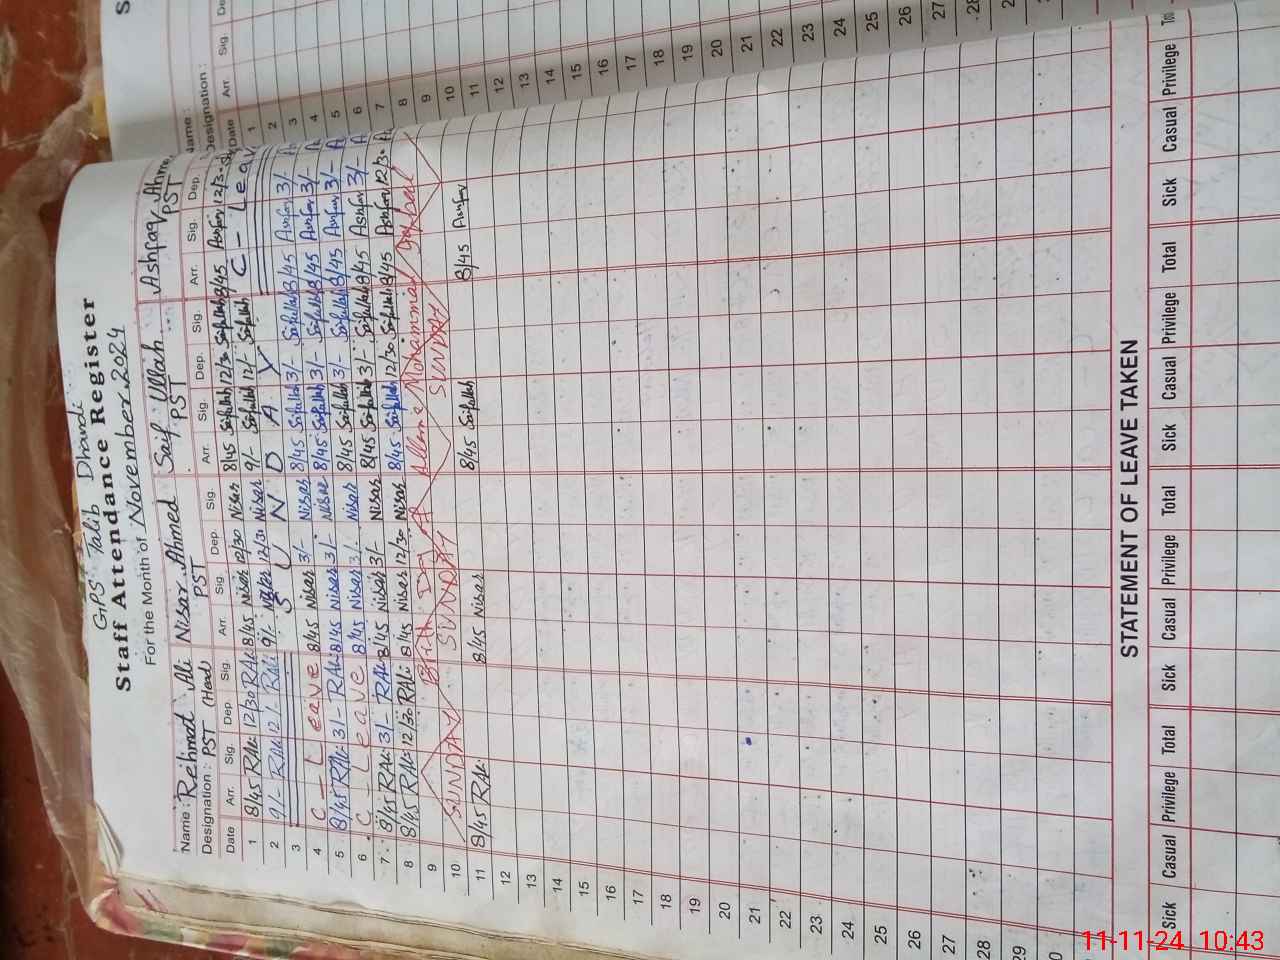 GPS Talib Dhandi
Staff Attendance Register
For the Month of November.2024
Name : Rehmat Ali Nisar Ahmed Saif Ullah Ashfaq
Designation : PST (Head) PST PST PST
Date Arr. Sig. Dep. Sig. Arr. Sig. Dep. Sig. Arr. Sig. Dep. Sig. Arr. Sig. Dep.
1 8/45 RAli 12/30 RAli 8/45 Nisar 12/30 Nisar 8/45 Saifullah 12/30 Saifullah 8/45 12/30
2 9/- RAli 12/- RAli 9/- Nisar 12/30 Nisar 9/- Saifullah 12/- Saifullah C - Leav
3 S U N D A Y
4 C - Leave 8/45 Nisar 3/- Nisar 8/45 Saifullah 3/- Saifullah 8/45 3/-
5 8/45 RAli 3/- RAli 8/45 Nisar 3/- Nisar 8/45 Saifullah 3/- Saifullah 8/45 3/-
6 C - Leave 8/45 Nisar 3/- Nisar 8/45 Saifullah 3/- Saifullah 8/45 3/-
7 8/45 RAli 3/- RAli 8/45 Nisar 3/- Nisar 8/45 Saifullah 3/- Saifullah 8/45 Ashfaq 3/-
8 8/45 RAli 12/30 RAli 8/45 Nisar 12/30 Nisar 8/45 Saifullah 12/30 Saifullah 8/45 Ashfaq 12/30
9 Brith Day Of Allama Mohammad
10 SUNDAY SUNDAY SUNDAY
11 8/45 RAli 8/45 Nisar 8/45 Saifullah 8/45
12
13
14
15
16
17
18
19
20
21
22
23
24
25
26
27
28
29
STATEMENT OF LEAVE TAKEN
Sick Casual Privilege Total Sick Casual Privilege Total Sick Casual Privilege Total Sick Casual Privilege
Name :
Designation :
Date Arr. Sig.
1
2
3
4
5
6
7
8
9
10
11
12
13
14
15
16
17
18
19
20
21
22
23
24
25
26
27
28
11-11-24 10:43